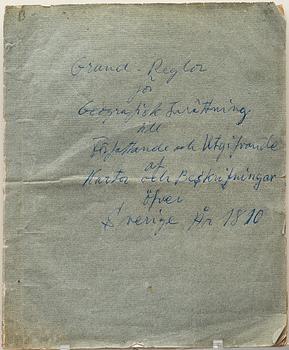 Grund-Reglor
för
Geografisk Inrättning
till
Författande och Utgifvande
af
Kartor och Beskrifningar
öfver
Sverige År 1810